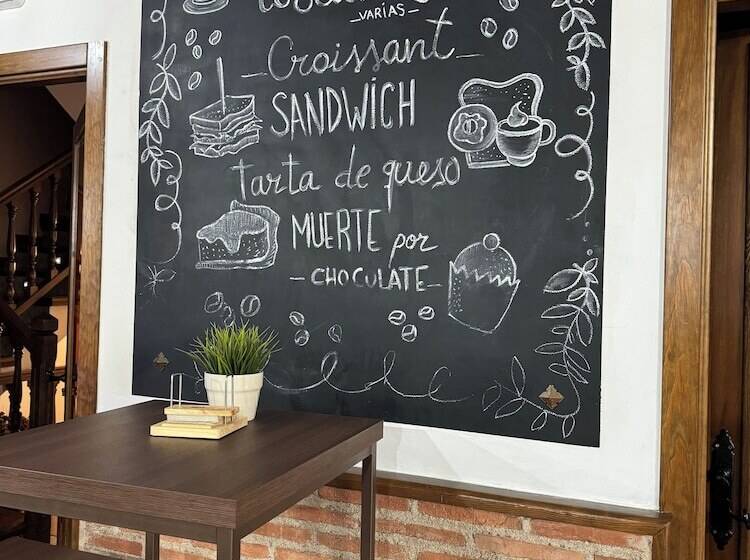 VARÍAS
Croissant
SANDWICH
tarta de queso
MUERTE por
CHOCULATE